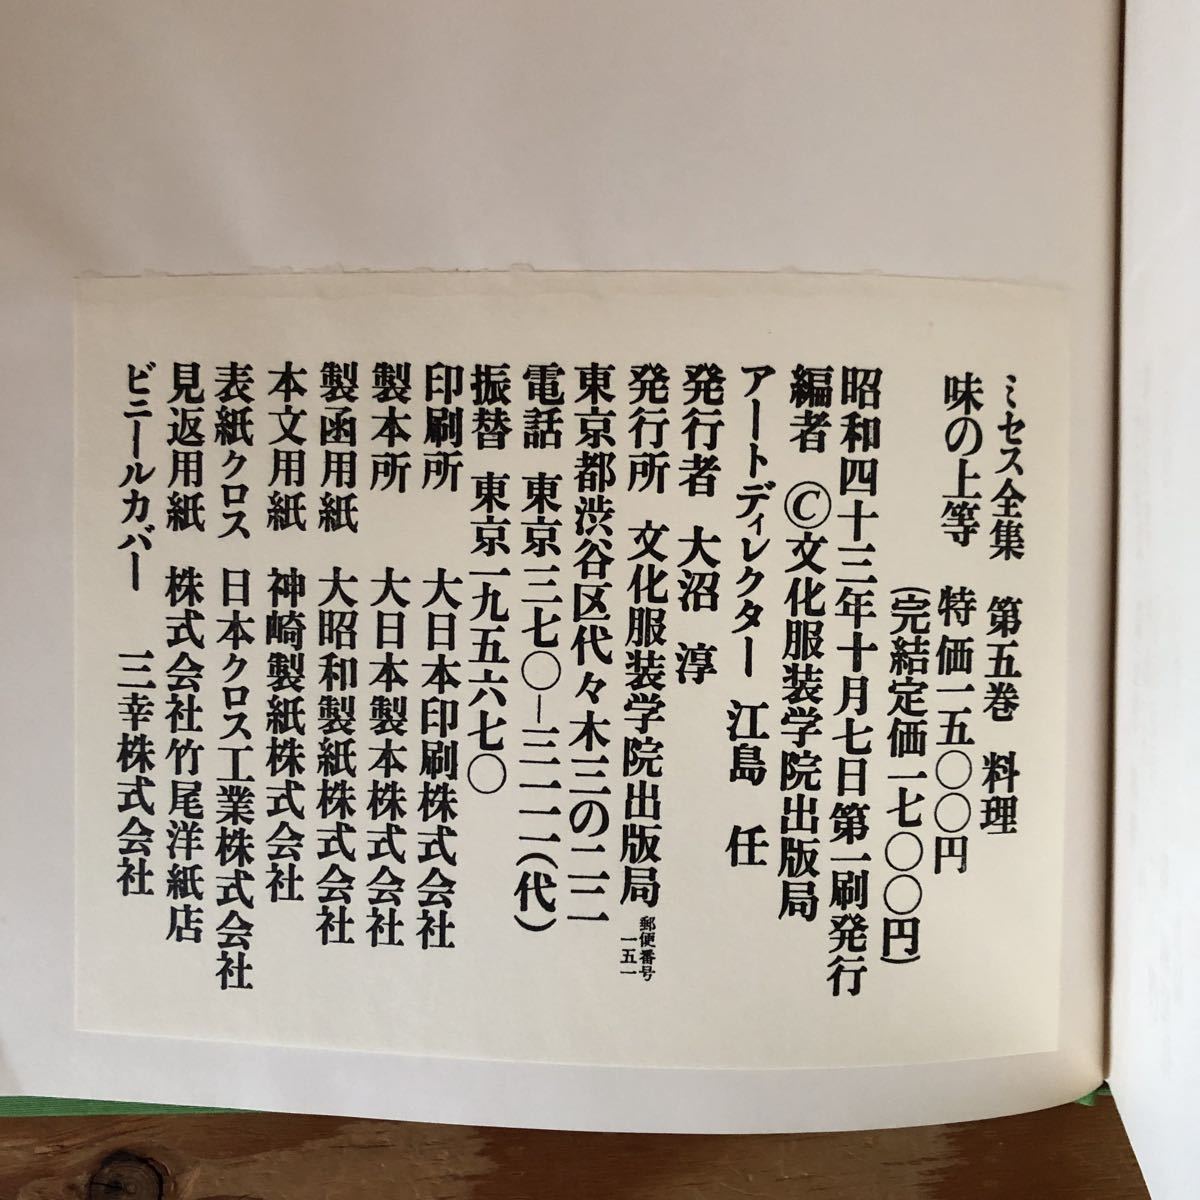 ミセス全集　第五巻　料理
味の上等　特価一五〇〇円
（完結定価一七〇〇円）
昭和四十三年十月七日第一刷発行
編者　©文化服装学院出版局
アートディレクター　江島　任
発行者　大沼　淳
発行所　文化服装学院出版局　郵便番号一五一
東京都渋谷区代々木三の二二
電話　東京三七〇－三一一一（代）
振替　東京一九五六七〇
印刷所　大日本印刷株式会社
製本所　大日本製本株式会社
製函用紙　大昭和製紙株式会社
本文用紙　神崎製紙株式会社
表紙クロス　日本クロス工業株式会社
見返用紙　株式会社竹尾洋紙店
ビニールカバー　三幸株式会社